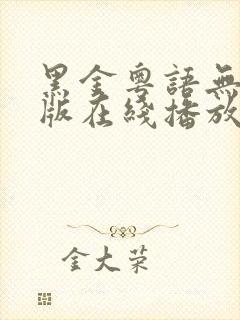 黑金粵語無
版在綫播放
金大荣